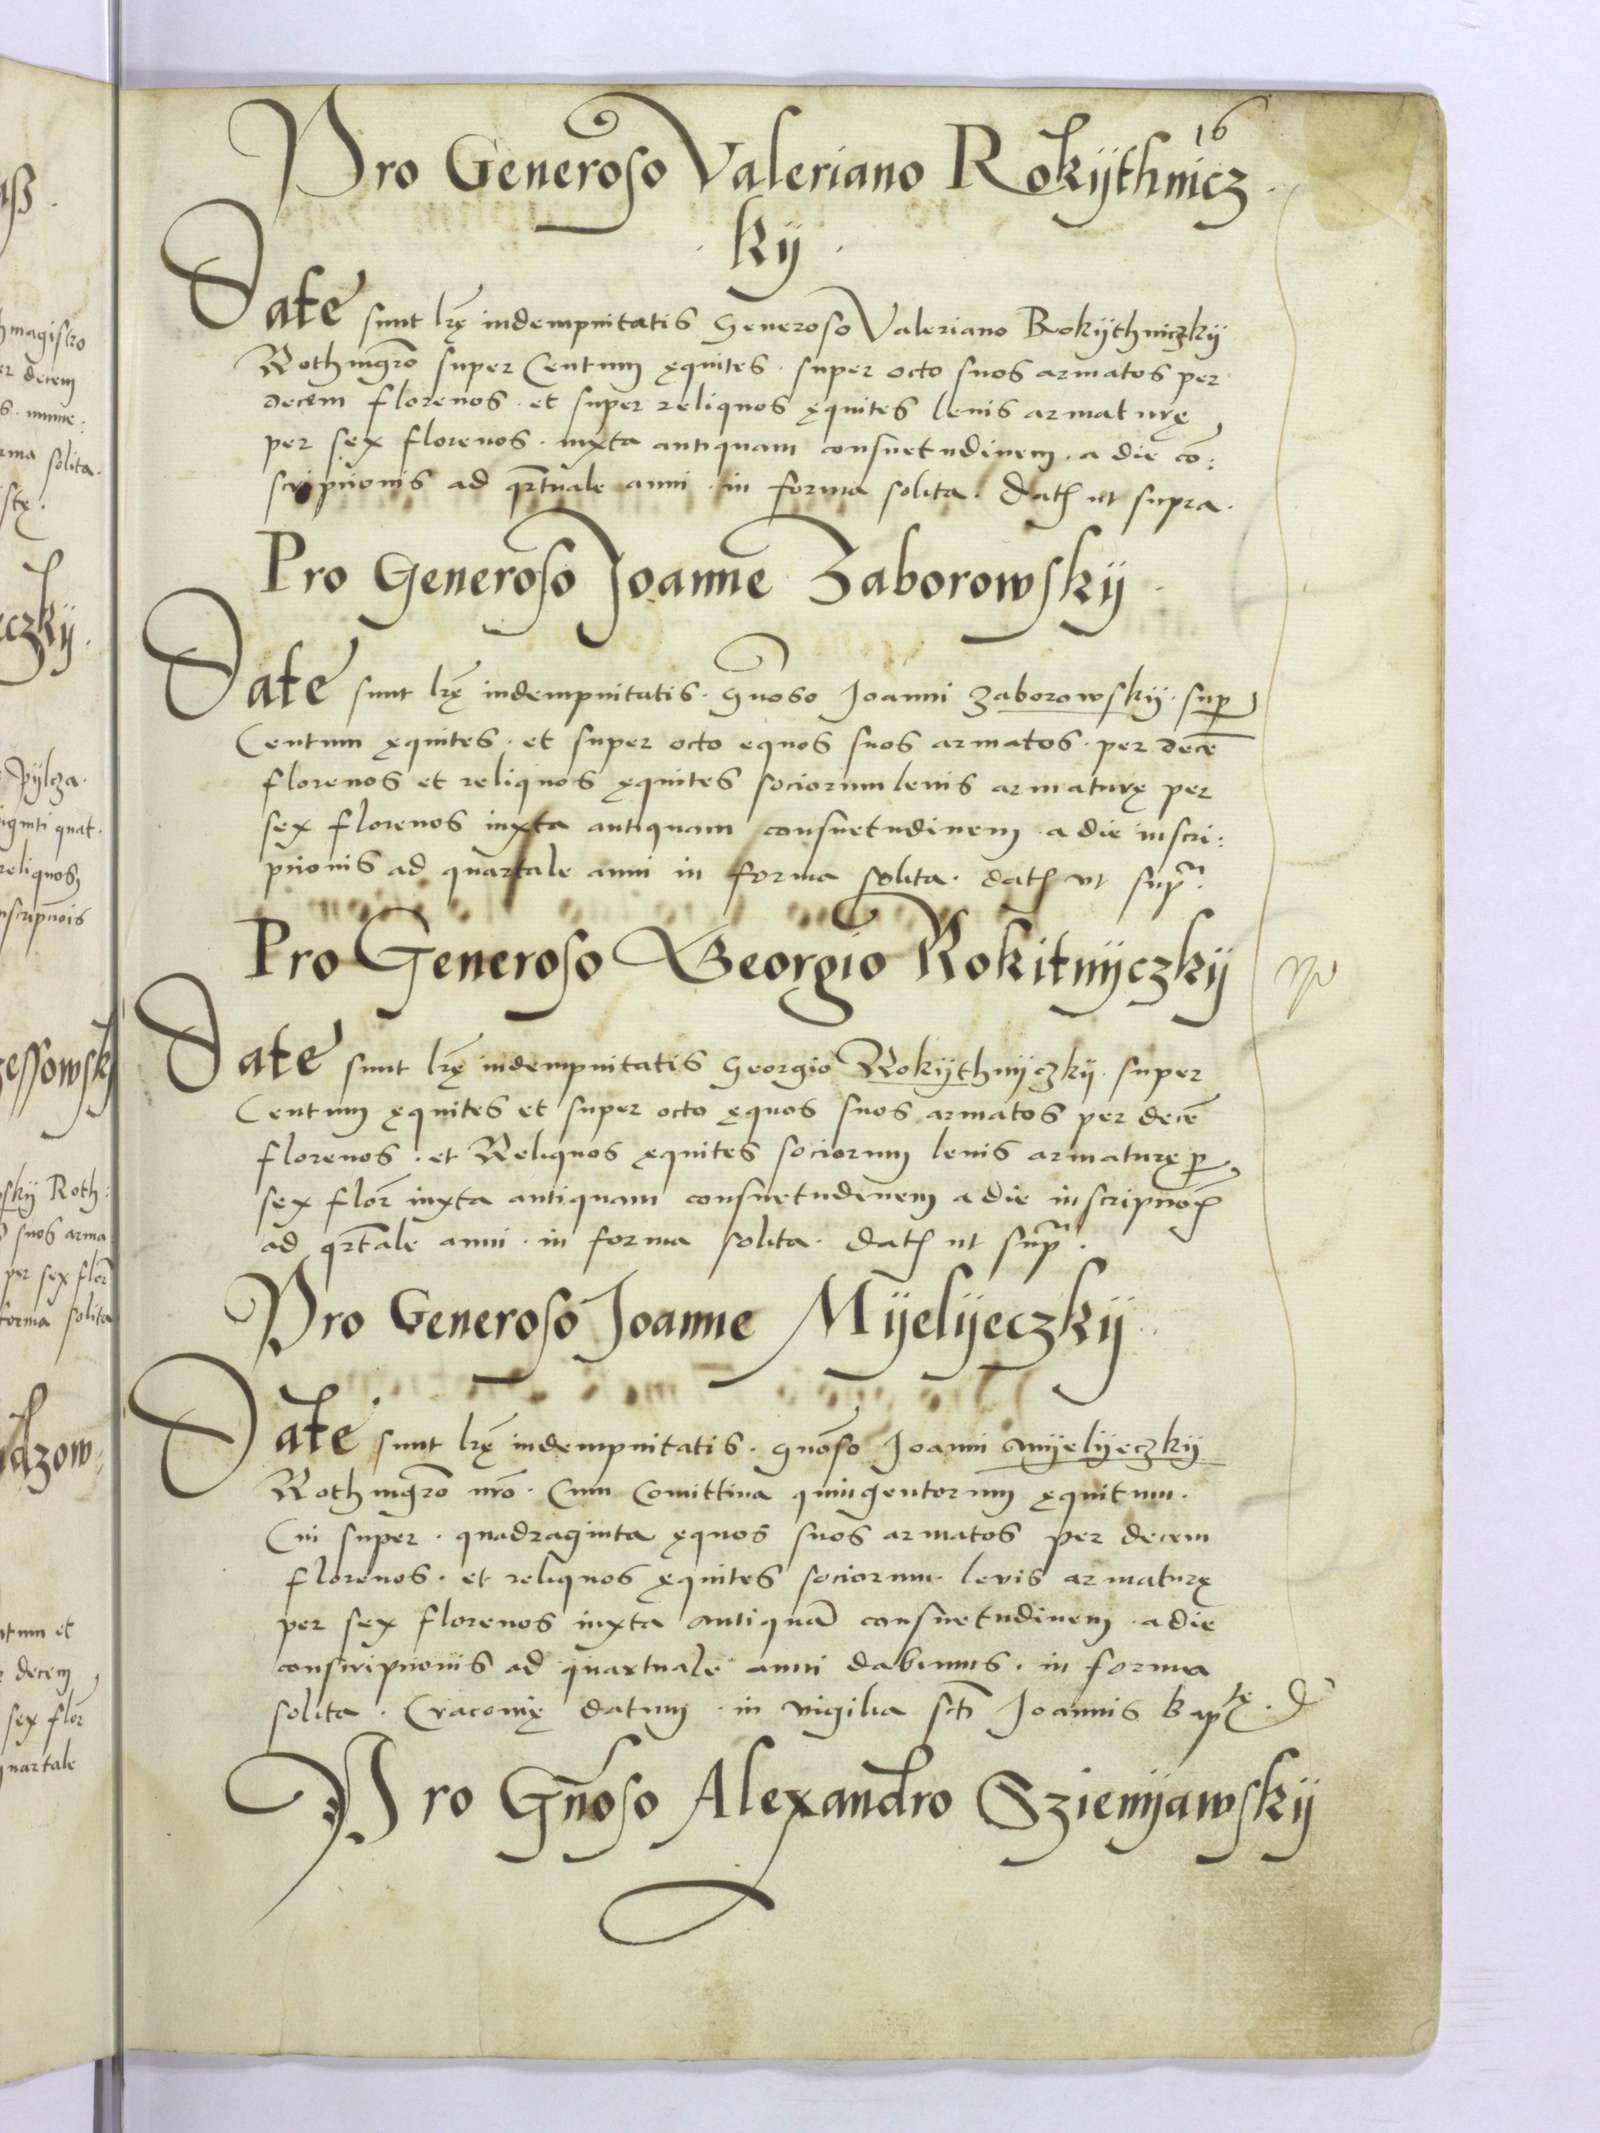 16
Pro Generoso Valeriano Rokijthnicz
. kij .
Date sunt lrę indempnitatis Generoso Valeriano Rokijthniczkij
Rothmgrō super Centum ęquites . super octo suos armatos per
decem florenos . et super reliquos ęquites levis armaturę
per sex florenos . iuxta antiquam consuetudinem . a die cō:
scriptionis ad qrtuale anni . in forma solita . Dat ut supra .
Pro Generoso Joanne Zaborowskij .
Date sunt lrę indempnitatis . Gnoso Joanni Zaborowskij . sup
Centum ęquites . et super octo equos suos armatos . per decē
florenos et reliquos ęquites sociorum levis armaturę per
sex florenos iuxta antiquam consuetudinem . a die inscri:
ptionis ad quartale anni in forma solita . dat ut supa .
Pro Generoso Georgio Rokitnijczkij
Date sunt lrę indempnitatis Georgio Rokijthnijczkij . super
Centum ęquites et super octo ęquos suos armatos per decē
florenos . et Reliquos ęquites sociorum levis armaturę p
sex flor iuxta antiquam consuetudinem a die inscriptiōs
ad qrtale anni . in forma solita . dat ut supa .
Pro Generoso Joanne Mijelijeczkij .
Date sunt lrę indempnitatis . gnōso Joanni Mijelijeczkij
Rothmgrō nrō . Cum Comittiva quingentorum ęquitum .
Cui super . quadraginta ęquos suos armatos per decem
florenos . et reliquos ęquites sociorum . levis armaturę
per sex florenos iuxta antiquā consuetudinem . a die
conscriptionis ad quartuale anni dabimus . in forma
solita . Cracovię datum . in vigilia scti Joannis baptę .
Pro Gnōso Alexandro Sziemijawskij